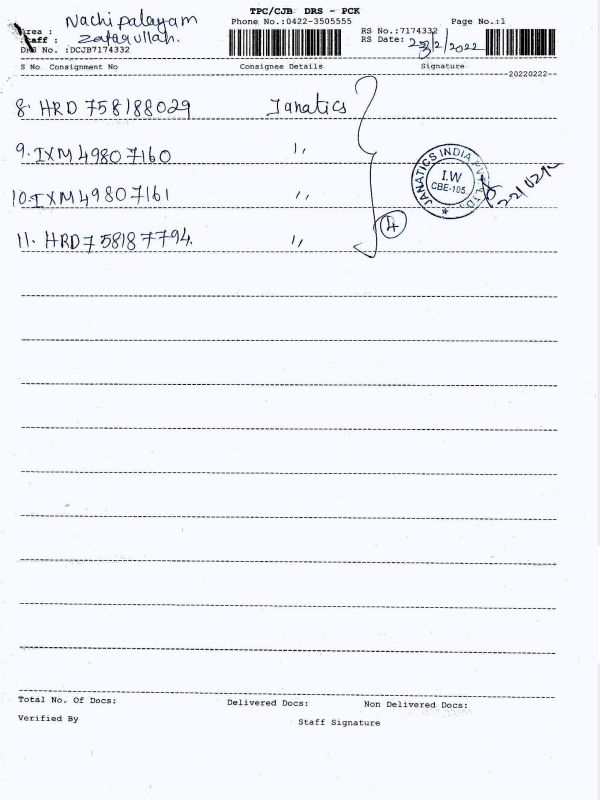 TPC/CJB DRS - PCK
Area : Nachipalayam
Phone No.:0422-3505555
Page No.:1
Staff : Zafarullah.
RS No.:7174332
RS Date: 22/2/2022
DRS No. :DCJB7174332
S No Consignment No Consignee Details Signature
20220222
8. HRD 758188029 Janatics
9. IXM 49807160 ,,
10. IXM 49807161 ,,
11. HRD 758187794. ,,
4
JANATICS INDIA PVT. LTD.
I.W
CBE-105.
Total No. Of Docs: Delivered Docs: Non Delivered Docs:
Verified By Staff Signature